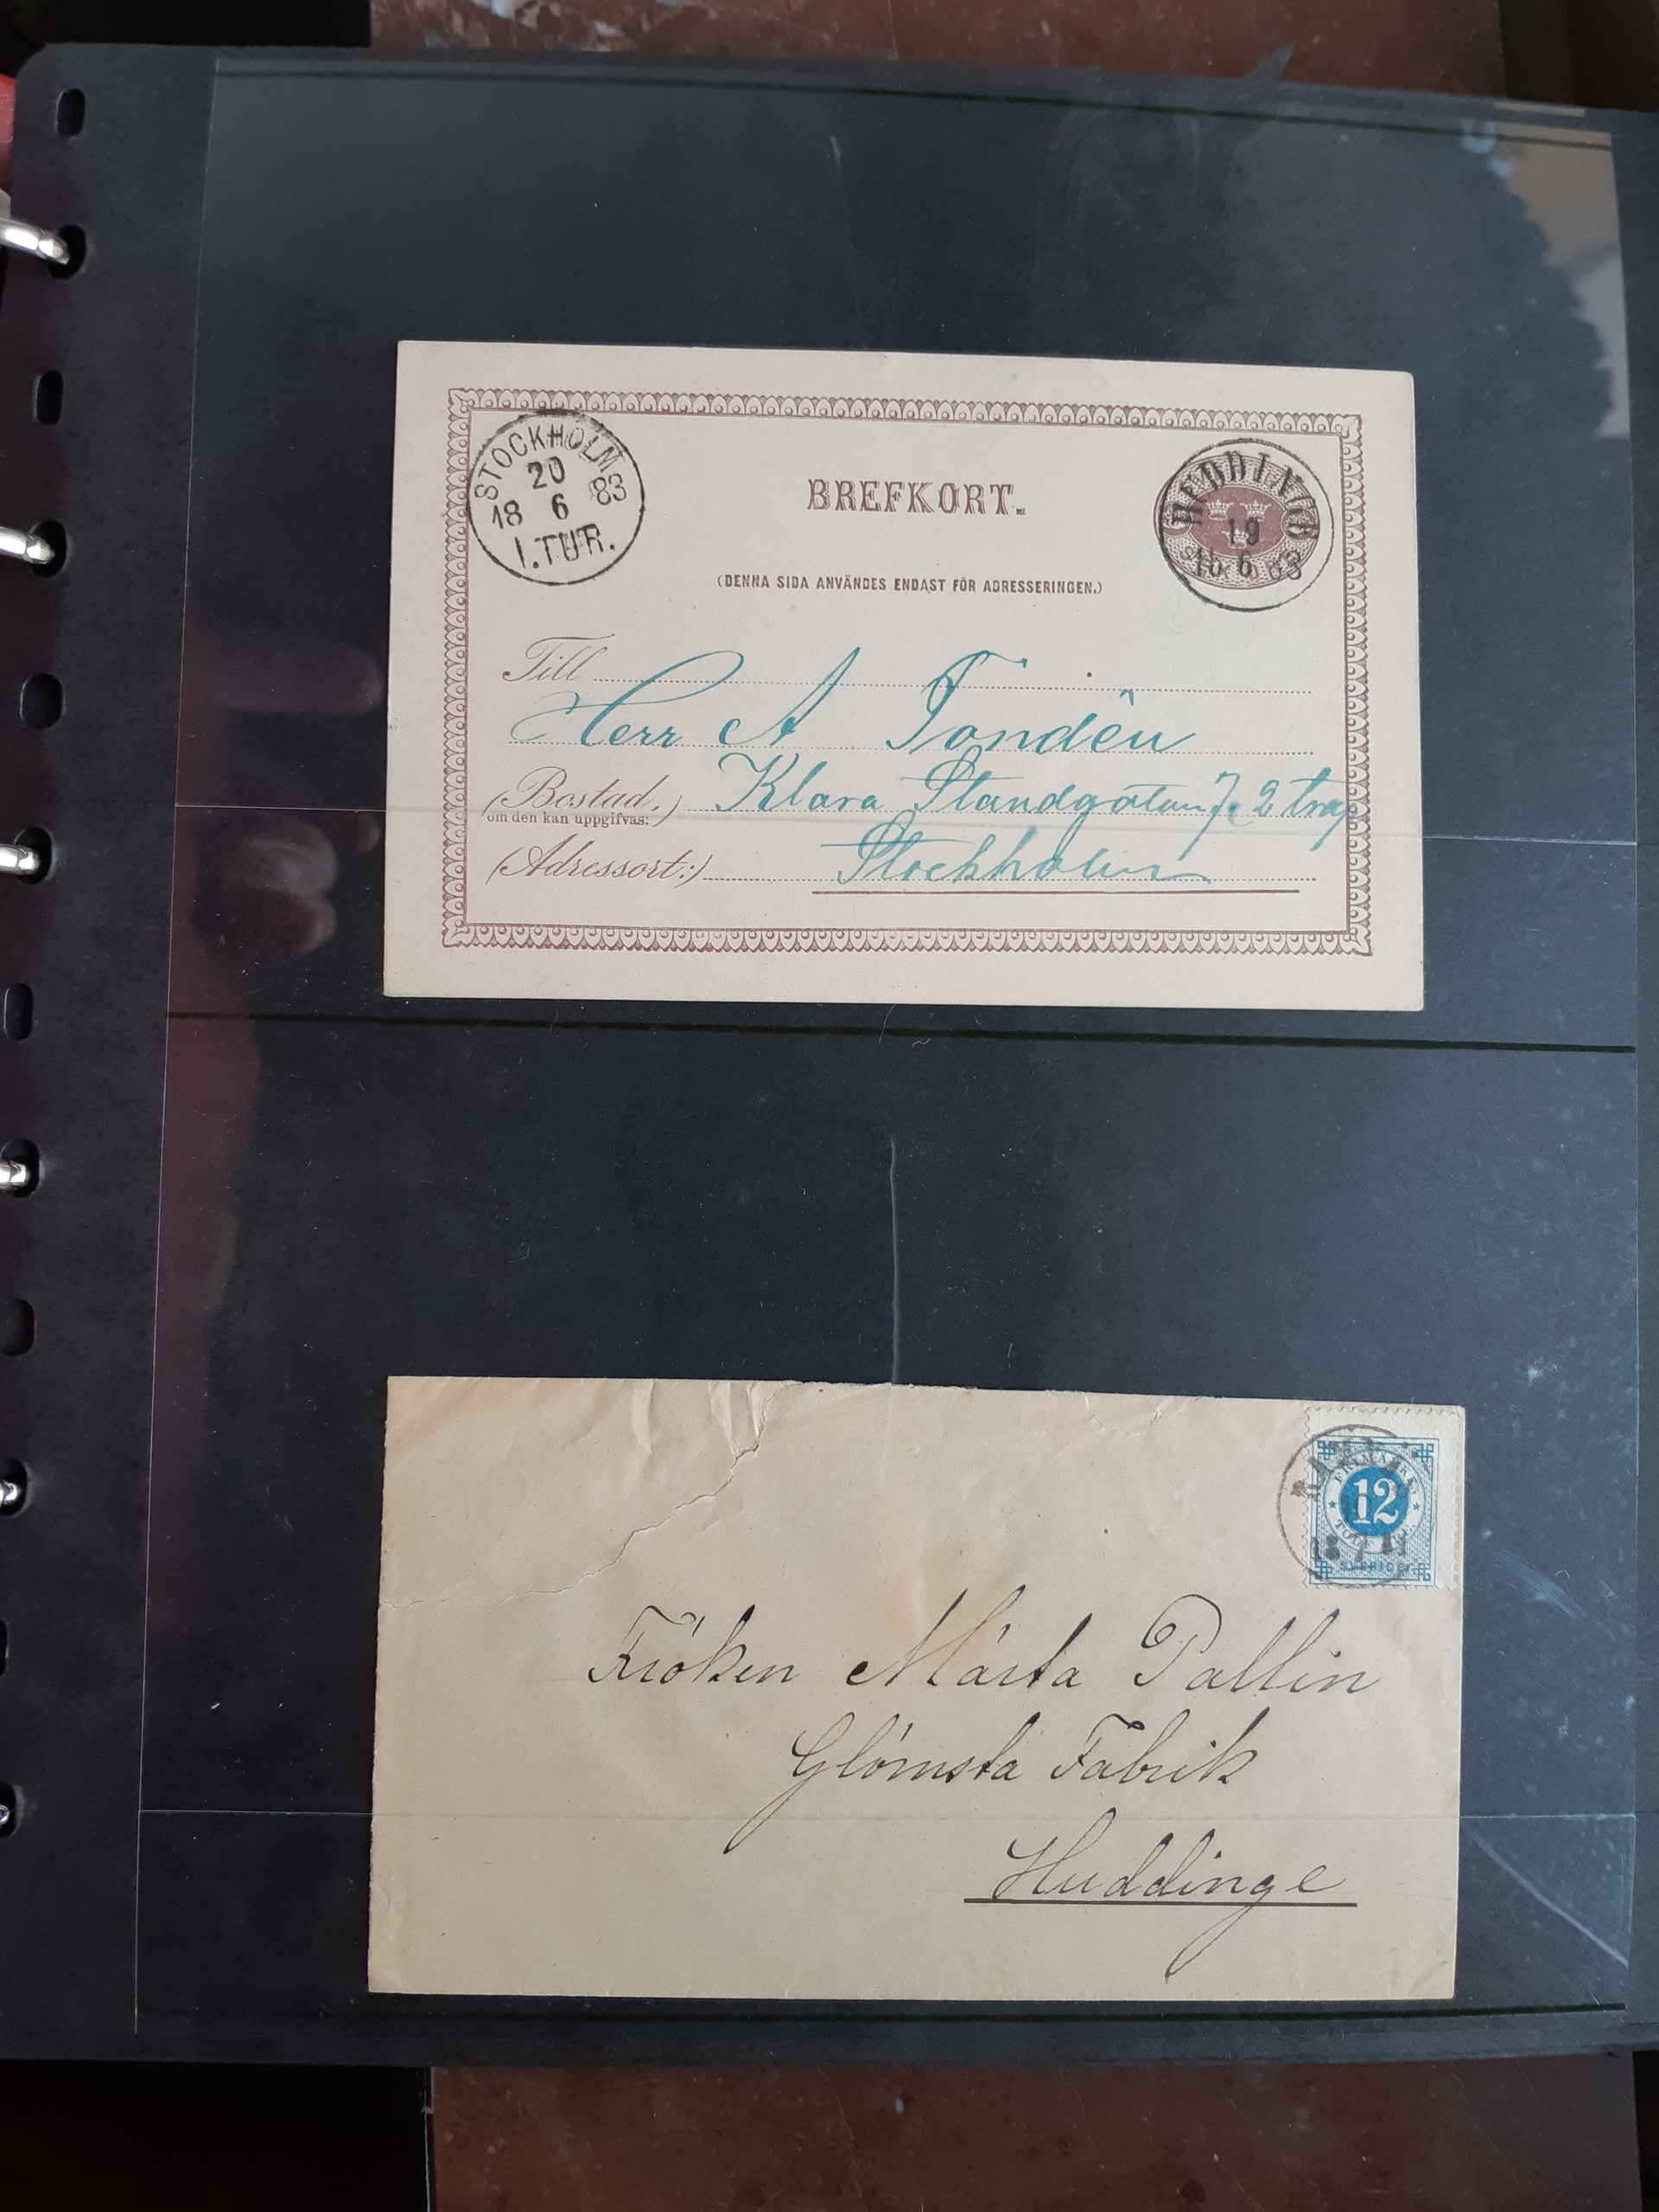 STOCKHOLM
20
18 6 83
1.TUR.
BREFKORT.
19
6
(DENNA SIDA ANVÄNDES ENDAST FÖR ADRESSERINGEN.)
Till
Herr A
(Bostad.) Klara 7, 2 trap
om den kan uppgifvas:
(Adressort:) Stockholm
FRIMÄRKE
12
TOLF
SVERIGE
Fröken Märta Pallin
Glömsta Fabrik
Huddinge